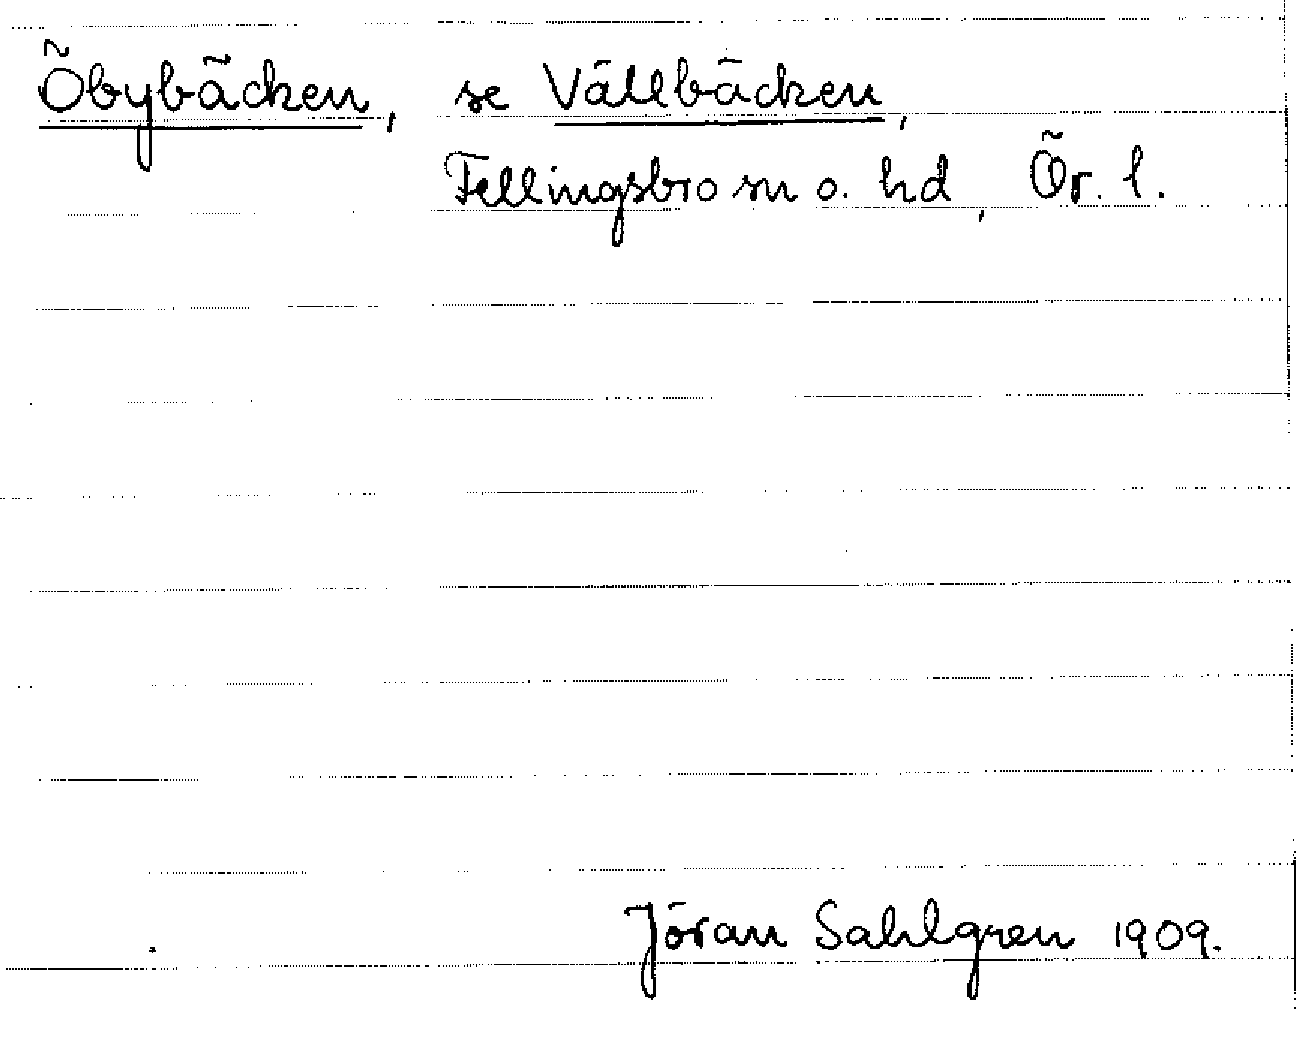 Öbybäcken, se Vällbäcken,
Fellingsbro sn o. hd, Ör. l.
Jöran Sahlgren 1909.